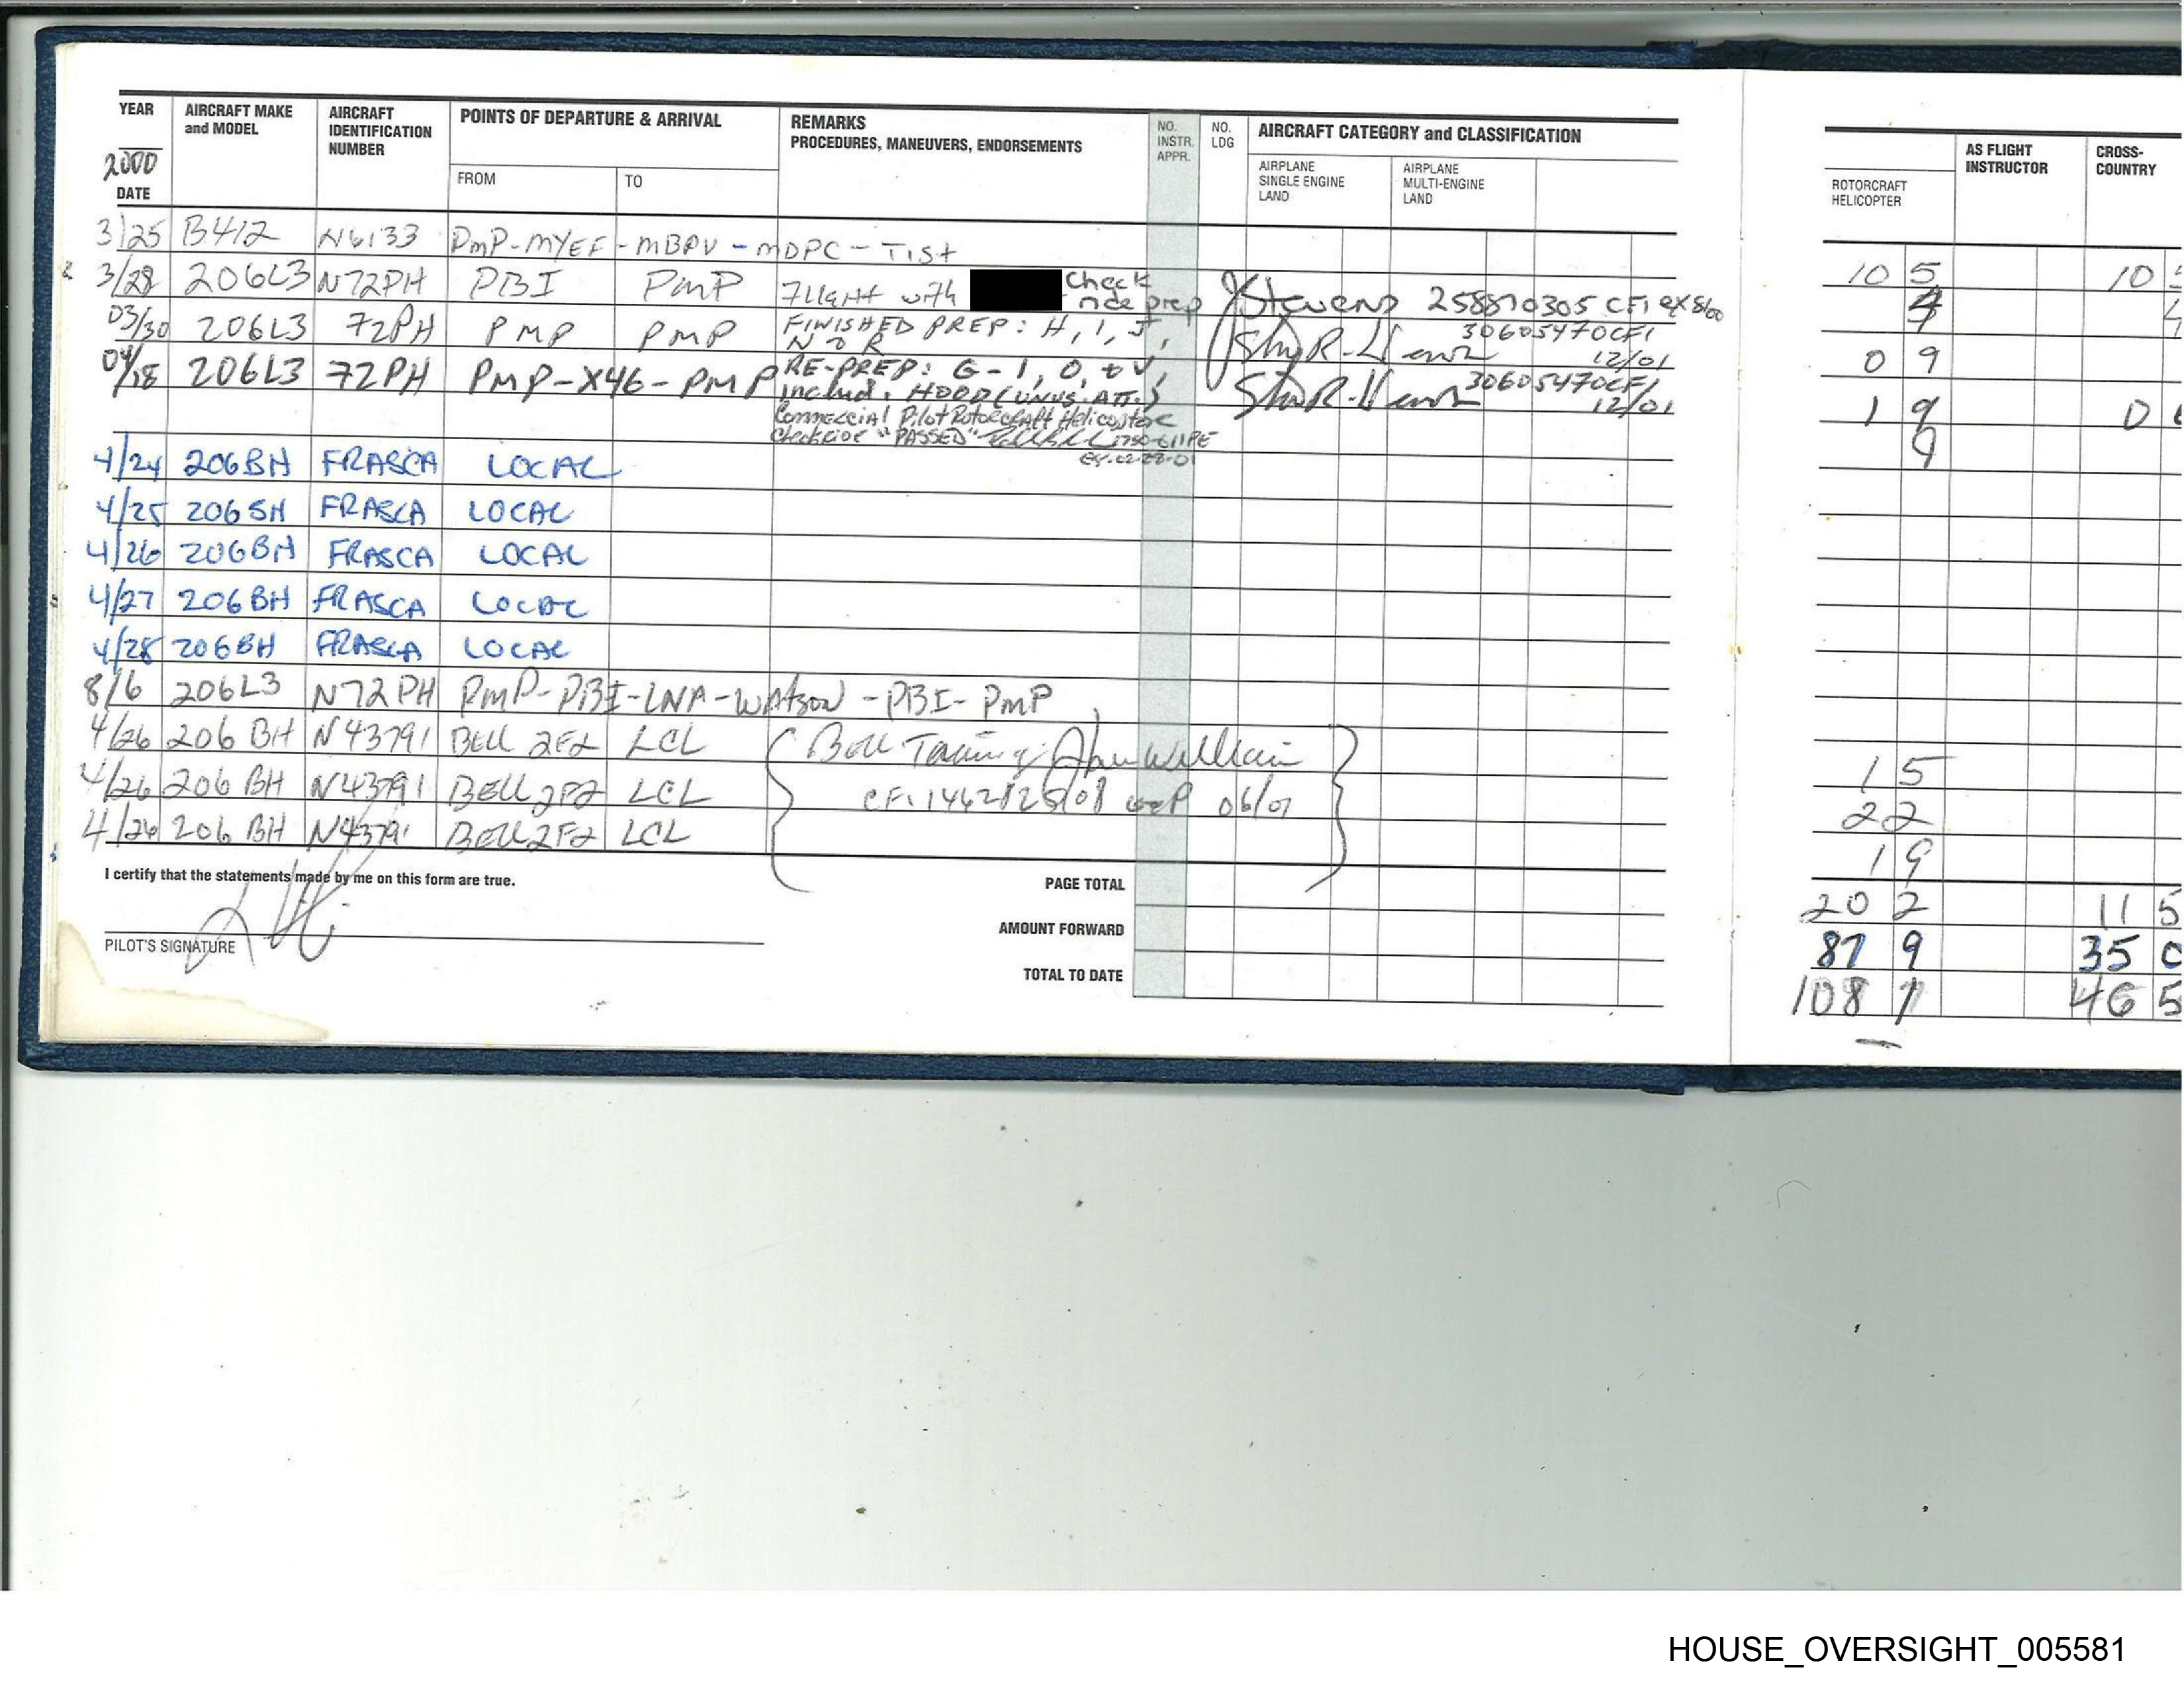 YEAR AIRCRAFT MAKE and MODEL AIRCRAFT IDENTIFICATION NUMBER POINTS OF DEPARTURE & ARRIVAL REMARKS PROCEDURES, MANEUVERS, ENDORSEMENTS NO. INSTR. APPR. NO. LDG AIRCRAFT CATEGORY and CLASSIFICATION AS FLIGHT INSTRUCTOR CROSS-COUNTRY
2000
DATE FROM TO AIRPLANE SINGLE ENGINE LAND AIRPLANE MULTI-ENGINE LAND ROTORCRAFT HELICOPTER
3/25 B412 N6133 PMP-MYEF-MBPV-MDPC-TIST 10 5 10
3/28 206L3 N72PH PBI PMP Flight with Check ride prep Stevens 258870305 CFI ex 8/00
03/30 206L3 72PH PMP PMP FINISHED PREP: H, I, J, N 30605470CFI 12/01 0 9
04/18 206L3 72PH PMP-X46-PMP RE-PREP: G-I, O, + V, includ. HOOD (UNUS. ATT.) 30605470CFI 12/01 1 9 0
Commercial Pilot Rotorcraft Helicopter
Checkride "PASSED"
4/24 206BH FRASCA LOCAL 9
4/25 206SH FRASCA LOCAL
4/26 206BH FRASCA LOCAL
4/27 206BH FRASCA LOCAL
4/28 206BH FRASCA LOCAL
8/6 206L3 N72PH PMP-PBI-LNA-WATSON-PBI-PMP
4/26 206 BH N43791 BELL LCL Bell 1 5
4/26 206 BH N43791 BELL LCL 06/01 2 2
4/26 206 BH N43791 BELL LCL 1 9
I certify that the statements made by me on this form are true. PAGE TOTAL 20 2 11 5
AMOUNT FORWARD 87 9 35
PILOT'S SIGNATURE
TOTAL TO DATE 108 1 46 5
HOUSE_OVERSIGHT_005581